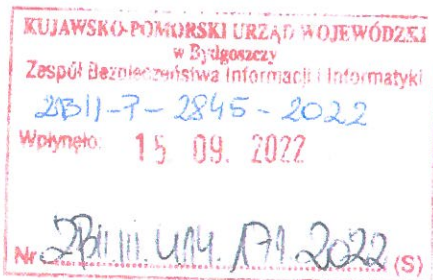 KUJAWSKO-POMORSKI URZĄD WOJEWÓDZKI
w Bydgoszczy
Zespół Bezpieczeństwa Informacji i Informatyki
ZBII-P-2845-2022
Wpłynęło: 15. 09. 2022
Nr ZBII.III.414.171.2022 (S)